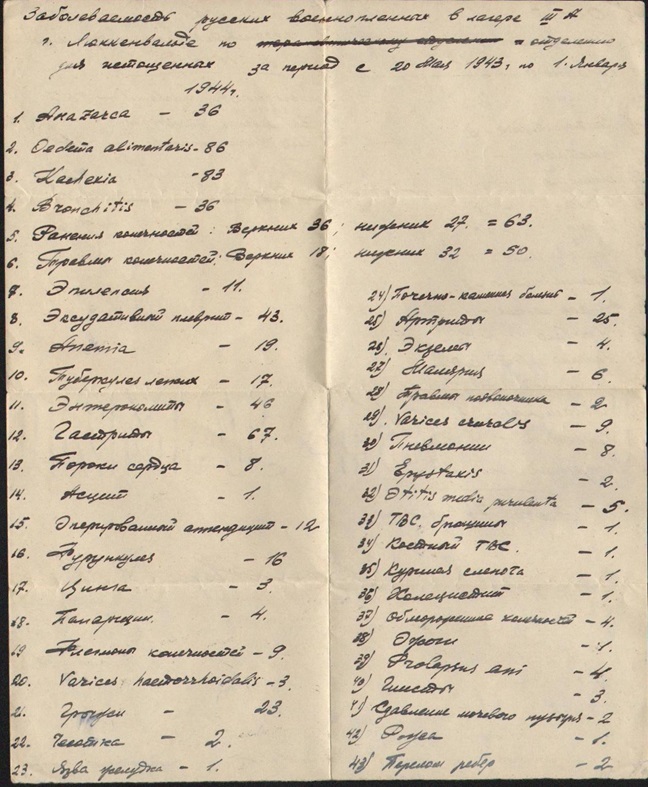 Заболеваемость русских военнопленных в лагере III А
г. Люккенвальде по отделению
для истощенных за период с 20 Мая 1943г. по 1. Января
1944г.
1. Anazarca - 36
2. Oedema alimentaris - 86
3. Kachexia - 83
4. Bronchitis - 36
5. Ранения конечностей: Верхних 36; нижних 27. = 63.
6. Травмы конечностей: Верхних 18; нижних 32 = 50.
7. Эпилепсия - 11.
8. Эксудативный плеврит - 43.
9. Anemia - 19.
10. Туберкулез легких - 17.
11. Энтероколиты - 46
12. Гастриты - 67.
13. Пороки сердца - 8.
14. Асцит - 1.
15. Оперированный аппендицит - 12
16. Фурункулез - 16
17. Цинга - 3.
18. Панариции - 4.
19. Флегмоны конечностей - 9.
20. Varices haemorrhoidalis - 3.
21. - 23.
22. Чесотка - 2.
23. Язва желудка - 1.
24) Почечно-каменная болезнь - 1.
25) Артриты - 25.
26) Экземы - 4.
27) Малярия - 6.
28) Травмы позвоночника - 2
29) Varices cruralis - 9.
30) Пневмонии - 8.
31) - 2.
32) Otitis media purulenta - 5.
33) ТВС. брюшины - 1.
34) Костный ТВС. - 1.
35) Куриная слепота - 1.
36) Холецистит - 1.
37) Обморожения конечностей - 4.
38) - 1.
39) Prolapsus ani - 4.
40) Глисты - 3.
41) Сдавление мочевого пузыря - 2
42) Рожа - 1.
43) Перелом ребер - 2